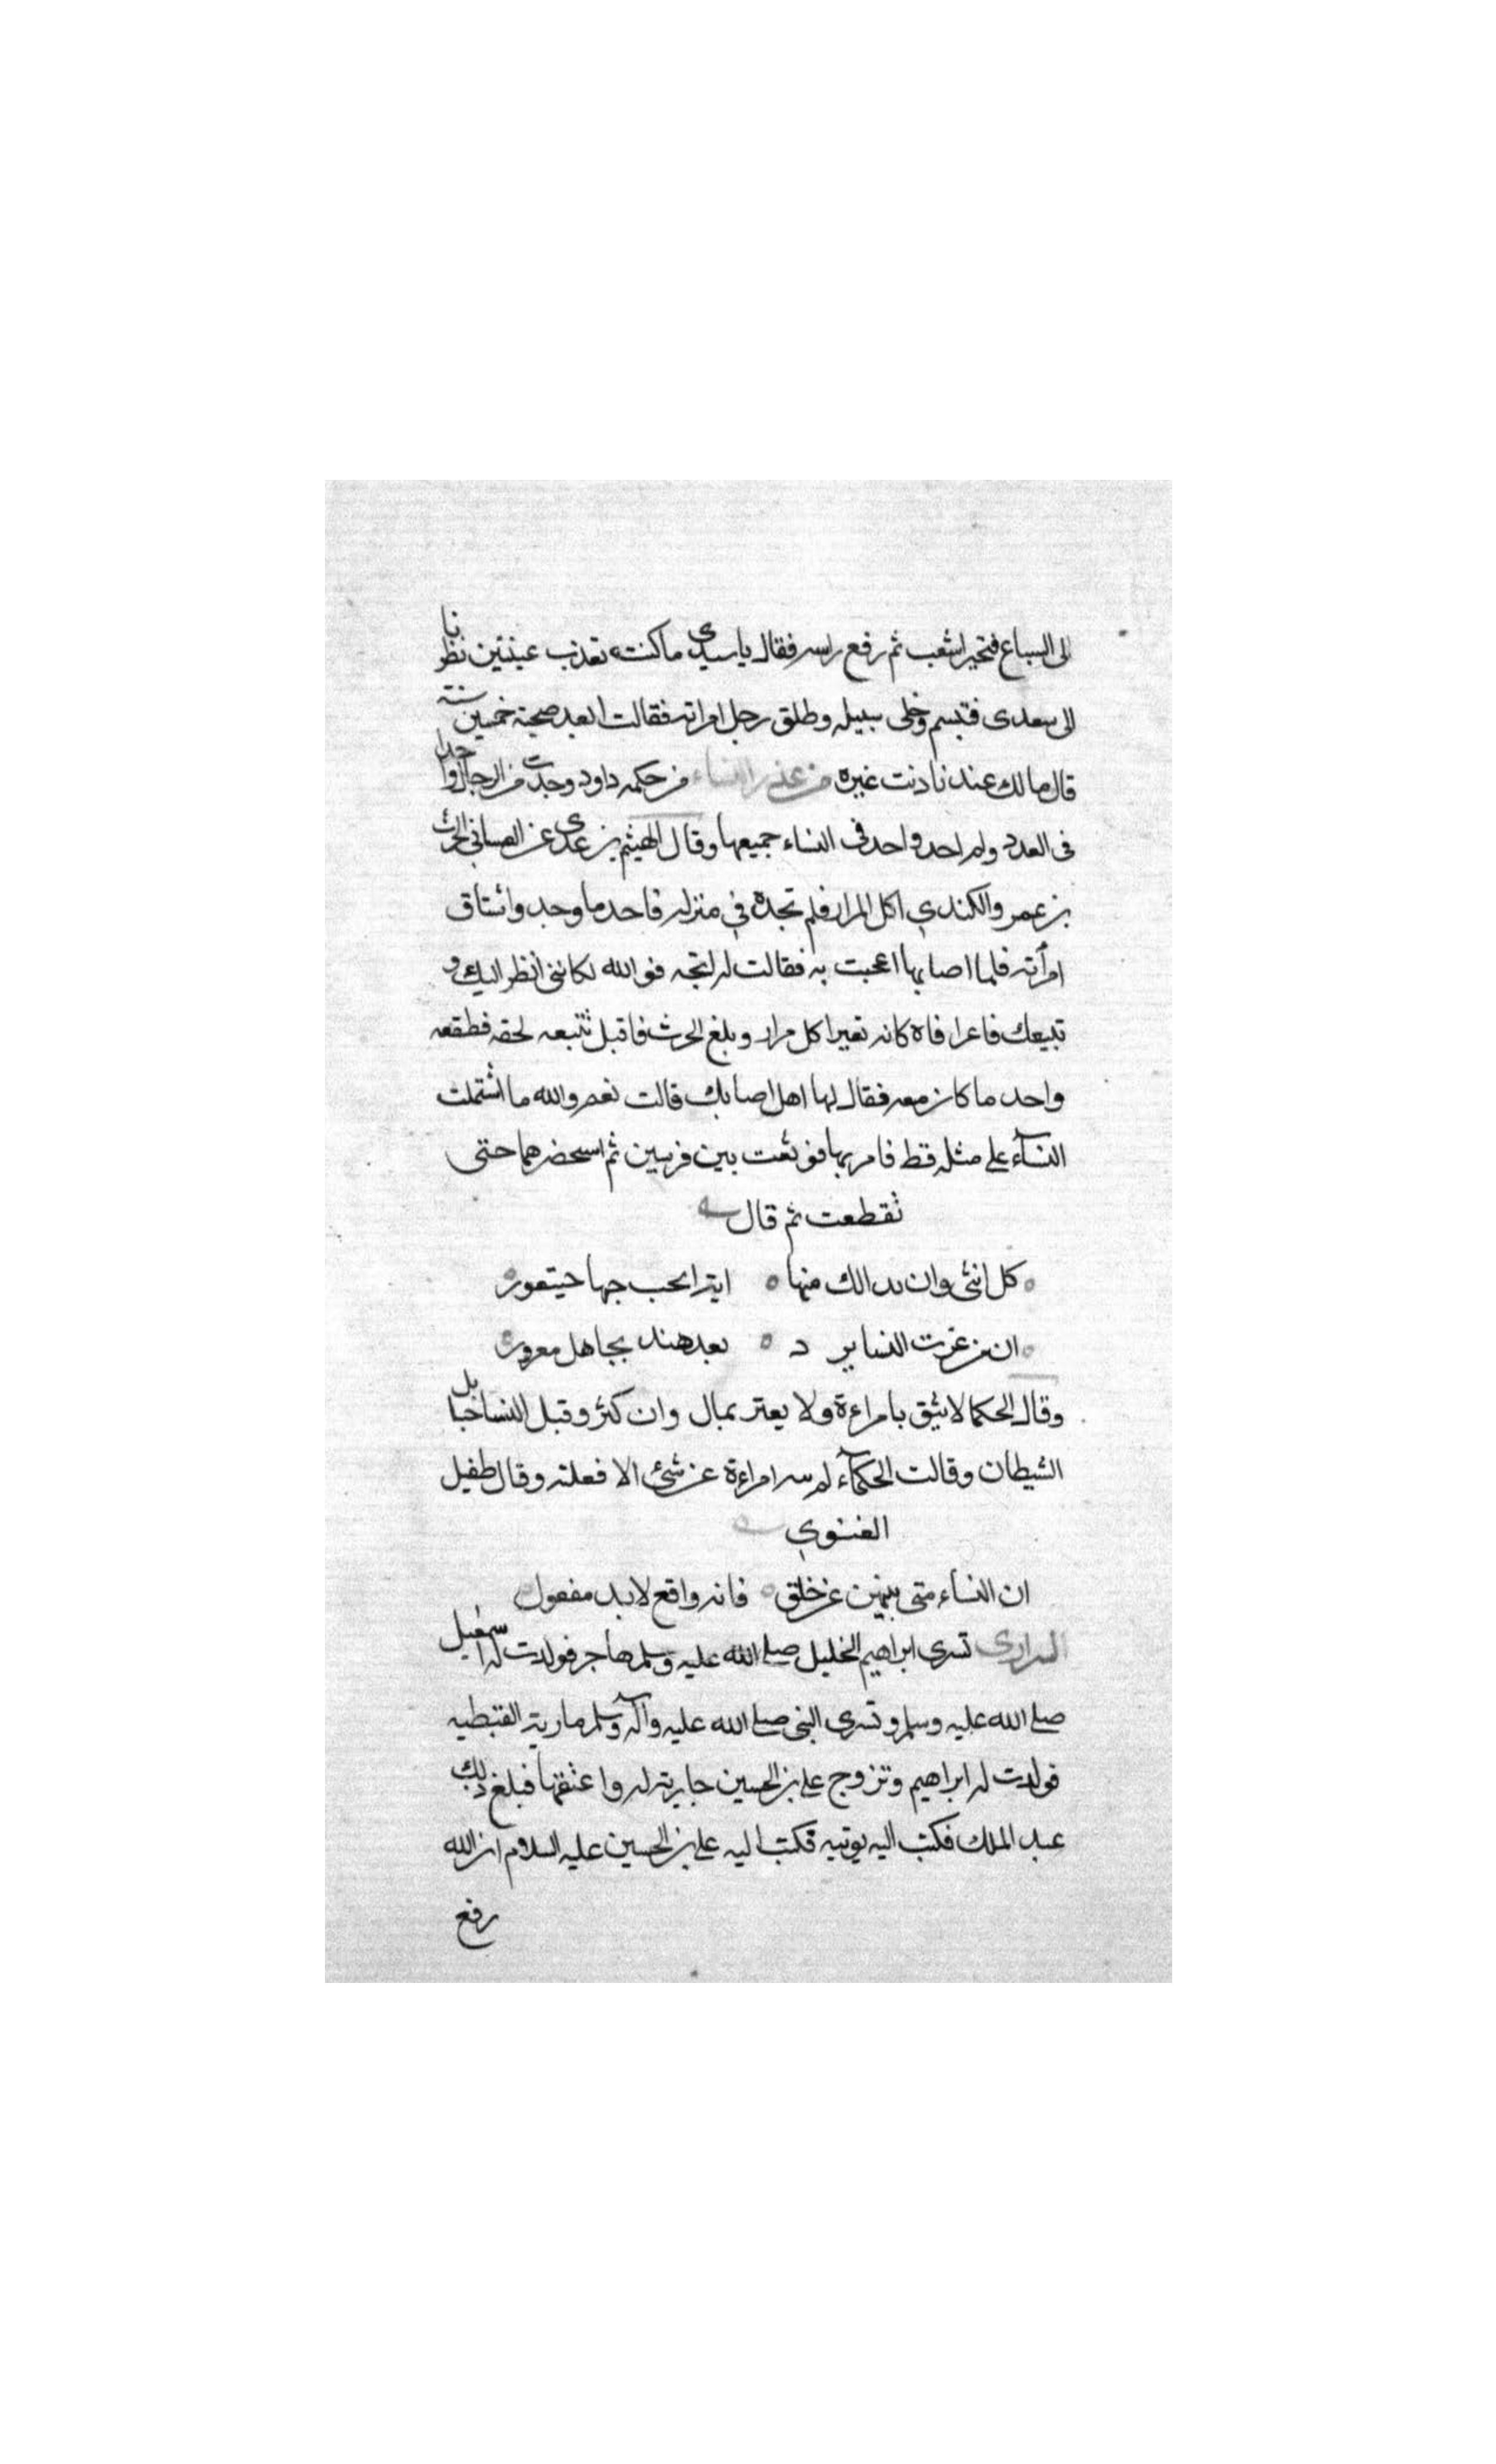 الى السباع فتحير اشعب ثم رفع راسه فقال يا سيدى ما كنت تعذب عينين نظرنا
الى سعدى فتبسم وخلى سبيله وطلق رجل امراته فقالت ابعد صحبة خمسين سنة
قال مالك عندنا ذنب غيره من عذر النساء من حكمة داود وجدت من الرجال واحدا
فى العدد ولم اجد واحد فى النساء جميعها وقال الهيثم بن عدى عن الحرث
بن عمرو الكندي اكل المرار فلم تجده في منزله فاخد ما وجد واستاق
امرأته فلما اصابها اعجبت به فقالت له انجه فوالله لكاننى انظر اليك و
تبيعك فاغرا فاه كانه بعير اكل مرار وبلغ الحرث فاقبل تتبعه لحقه فقطعه
واخد ما كان معه فقال لها اهل اصابك قالت نعم والله ما اشتملت
النسآء على مثله قط فامر بها فوثقت بين فرسين ثم استحضرهما حتى
تقطعت ثم قال
كل انثى وان بدا لك منها اية الحب حبها حيتعور
ان من غرت النسا بود بعد هند بجاهل مغرور
وقال الحكما لا يثق بامراءة ولا يغتر بمال وان كثر وقيل النسا حبايل
الشيطان وقالت الحكمآء لم امراءة عن شئ الا فعلته وقال طفيل
الغنوي
ان النساء متى ينهين عن خلق فانه واقع لا بد مفعول
السرارى تسرى ابراهيم الخليل صلى الله عليه وسلم هاجر فولدت له اسمعيل
صلى الله عليه وسلم وتسرى النبى صلى الله عليه وآله وسلم مارية القبطيه
فولدت له ابراهيم وتزوج على بن الحسين جارية له واعتقها فبلغ ذلك
عبد الملك فكتب اليه يوبنه فكتب اليه على بن الحسين عليه السلام ان الله
رفع